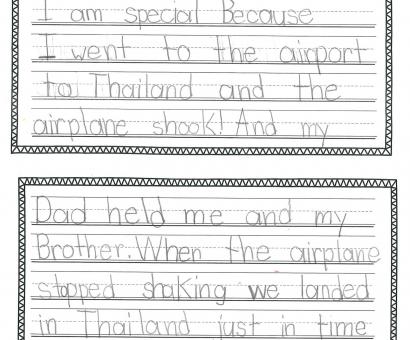 I am special Because
I went to the airport
to Thailand and the
airplane shook! And my
Dad held me and my
Brother. When the airplane
stopped shaking we landed
in Thailand just in time